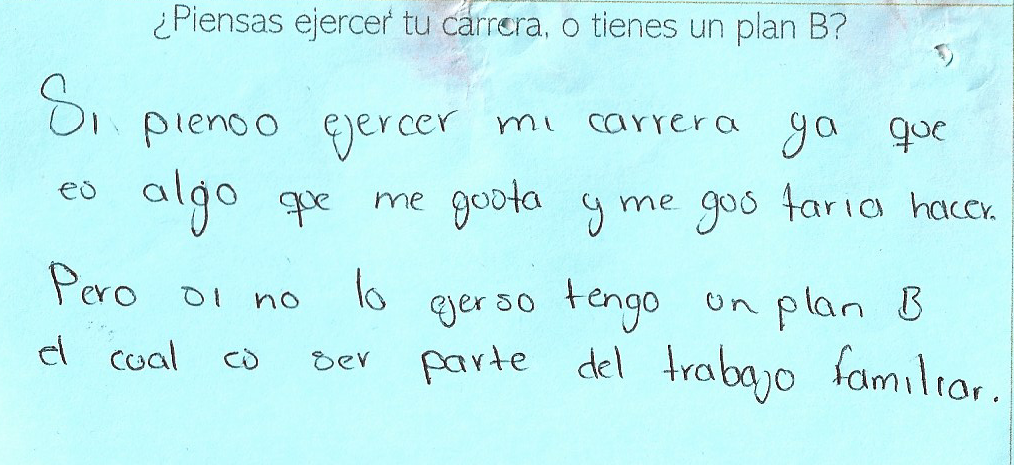 ¿Piensas ejercer tu carrera, o tienes un plan B?
Si pienso ejercer mi carrera ya que
es algo que me gusta y me gustaria hacer.
Pero si no lo ejerso tengo un plan B
el cual es ser parte del trabajo familiar.